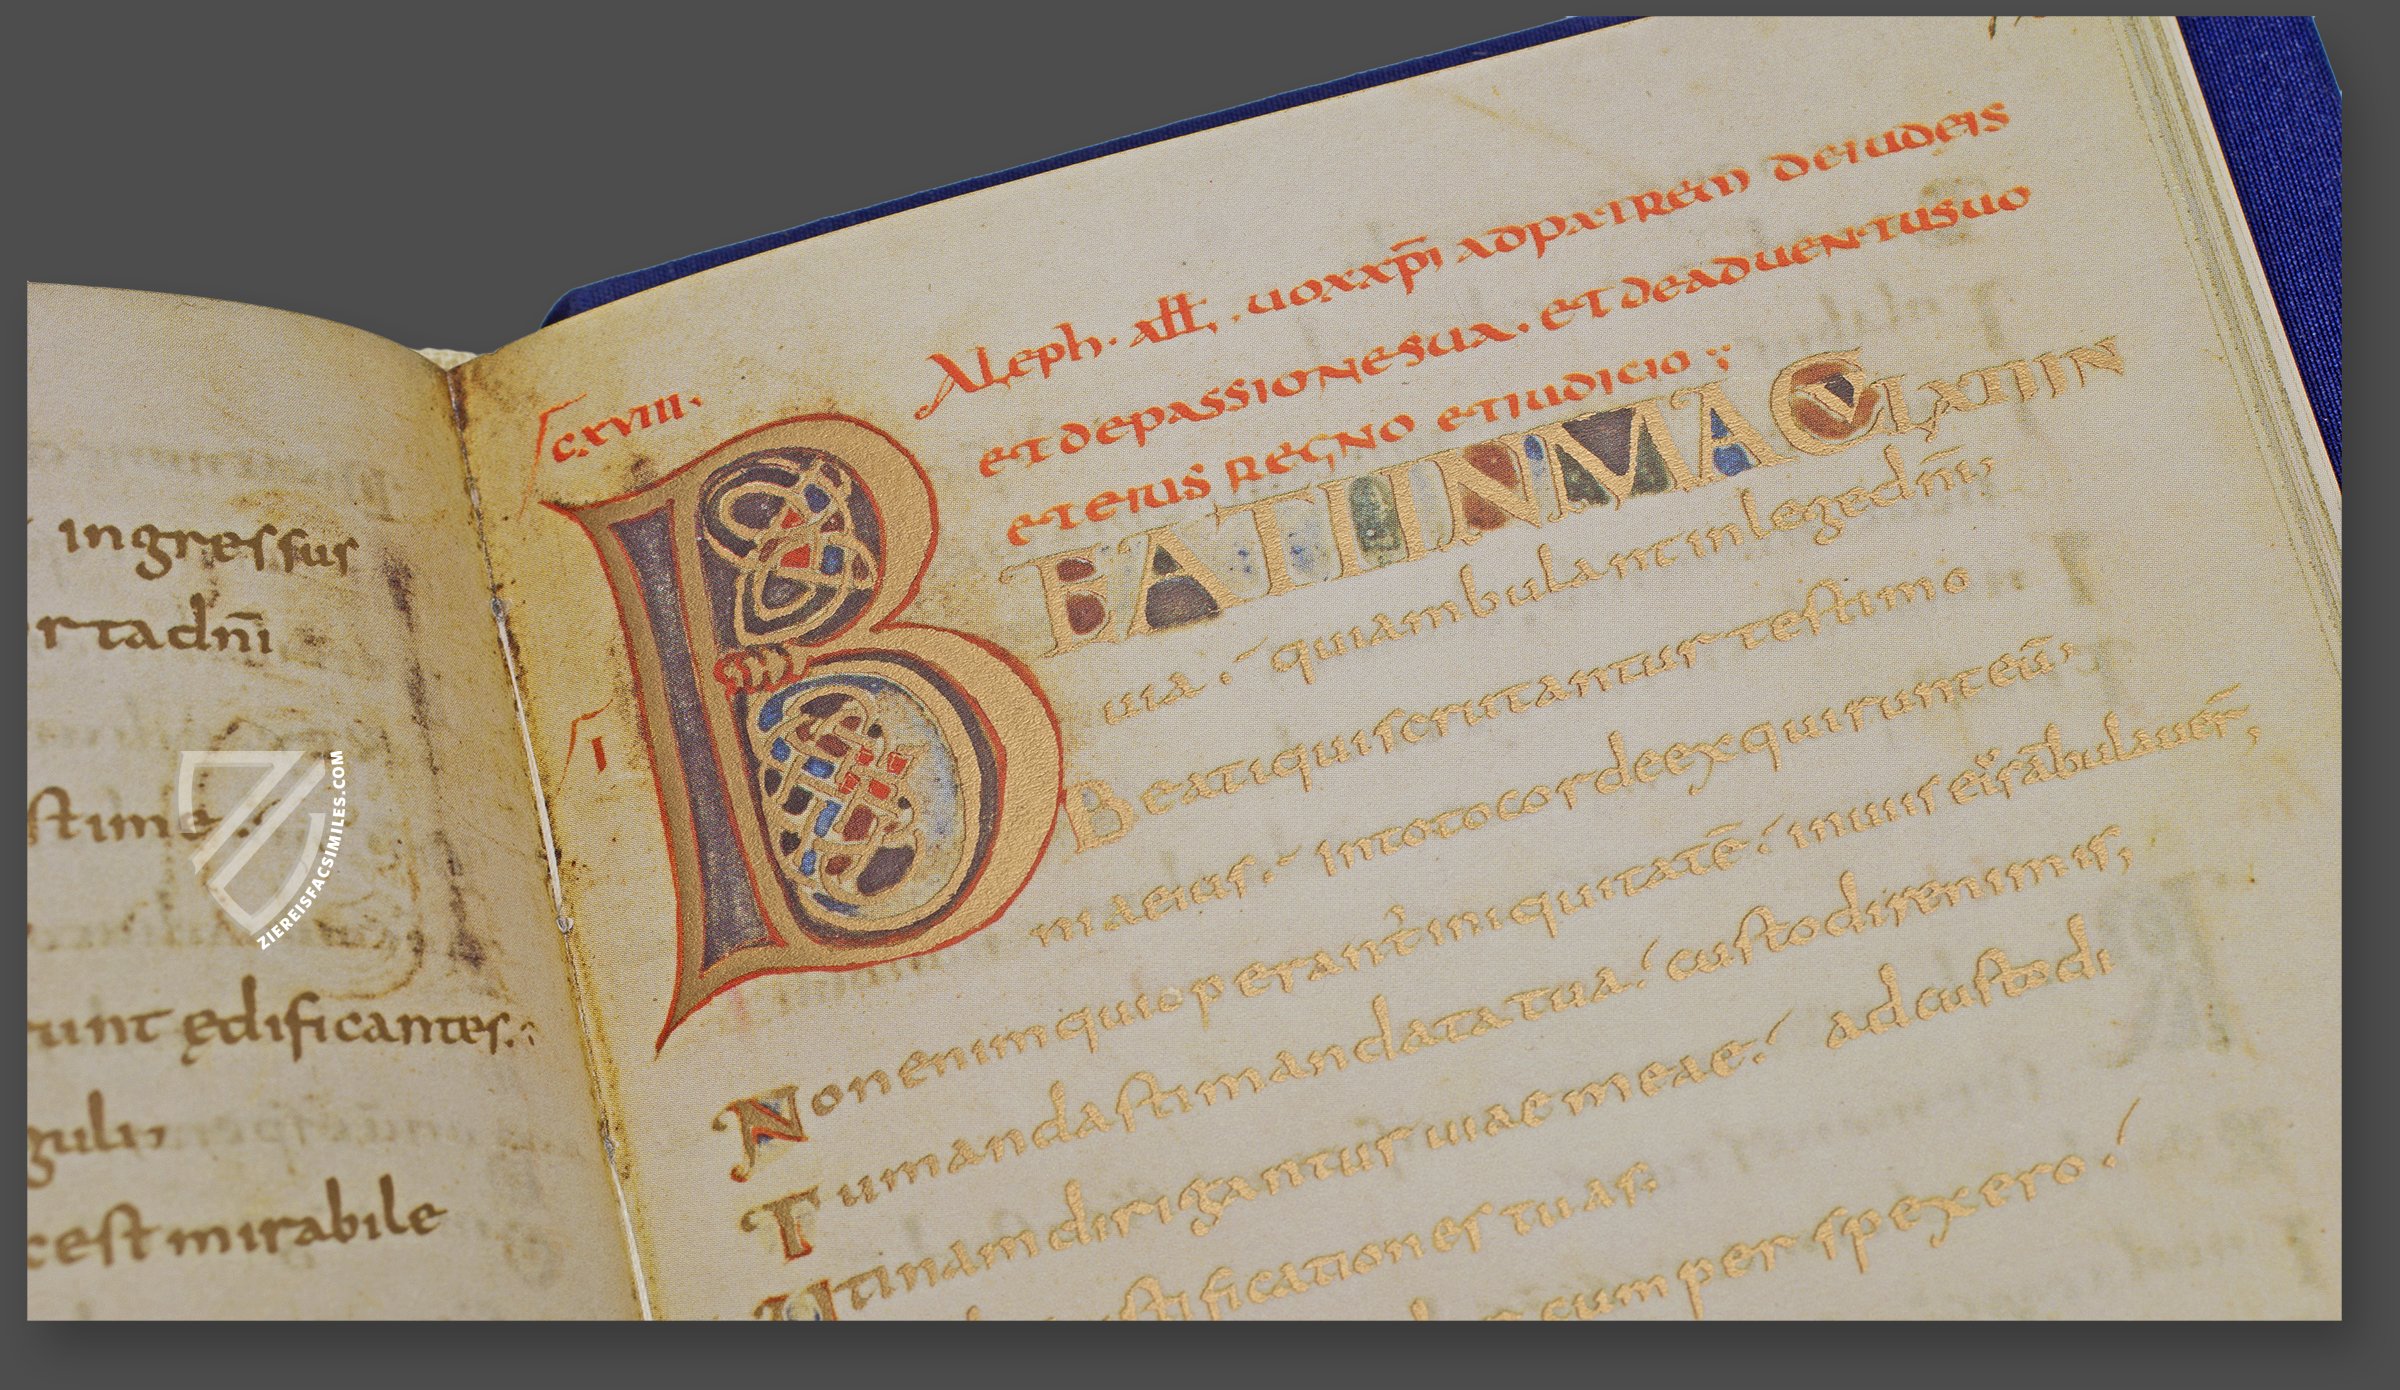 ingressus
rtadn̄i
stime
runt ędificantes.
guli,
cest mirabile
ZIEREISFACSIMILES.COM
CXVIII.
Aleph. all, . uox xp̄i ad patrem de iudeis
et de passione sua. et de aduentu suo
et eius regno et iudicio
BEATI INMACVLATI IN
uia. qui ambulant in lege dn̄i,
I
Beati qui scrutantur testimo
nia eius. in toto corde exquirunt eū,
Non enim qui operant iniquitatē. in uiis ei ābulauer̄,
Tu mandasti mandata tua. custodire nimis,
Utinam dirigantur uiae meae. ad custodi
stificationes tuas.
cum perspexero.